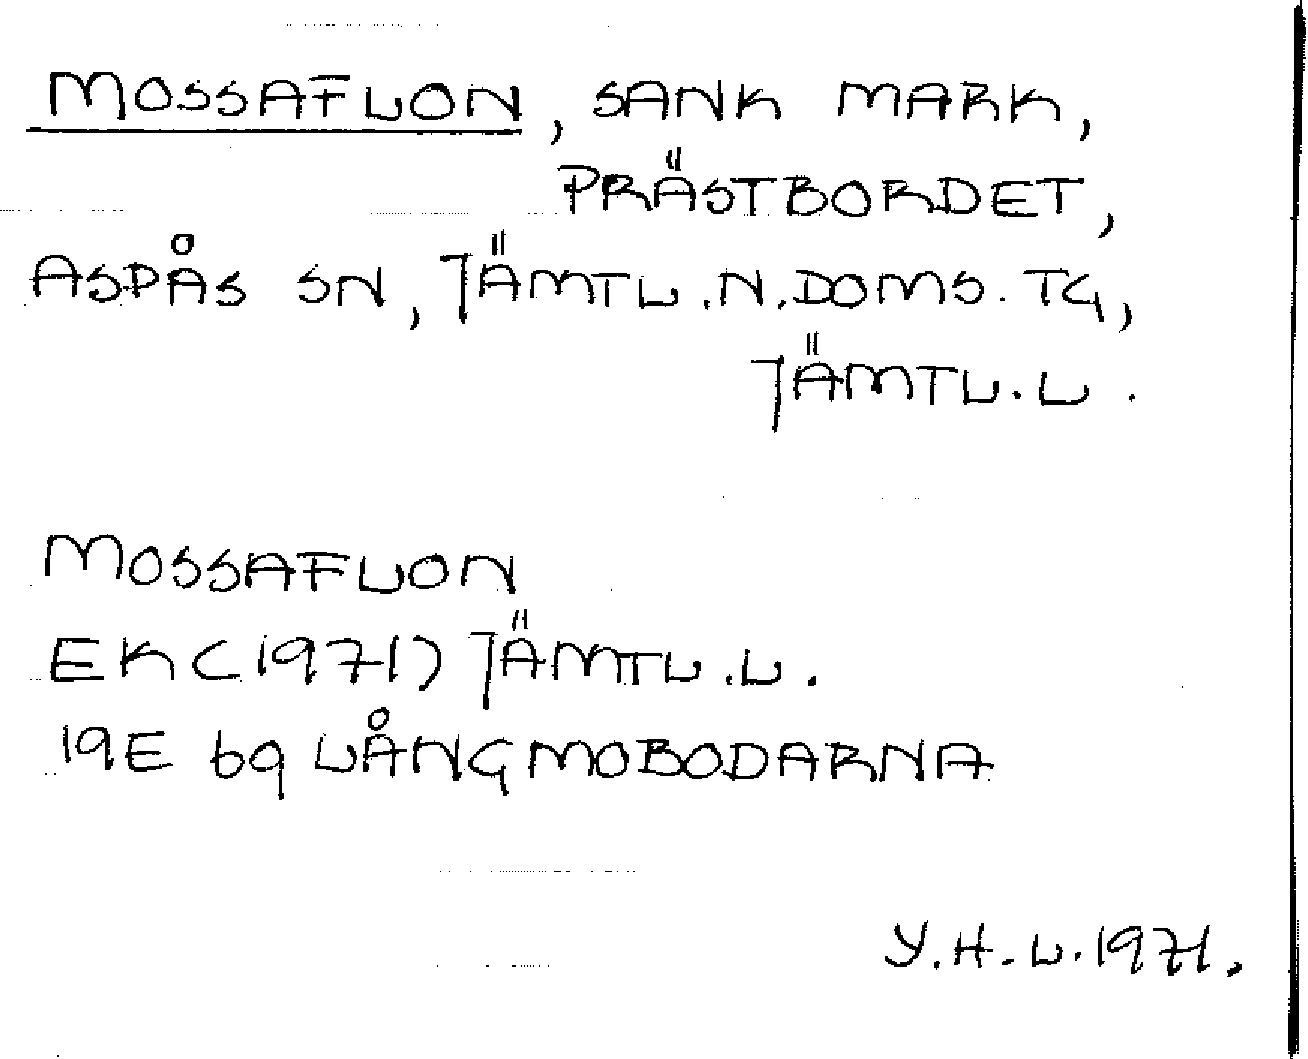 MOSSAFLON, SANK MARK,
PRÄSTBORDET,
ASPÅS SN, JÄMTL.N.DOMS.TG,
JÄMTL.L.
MOSSAFLON
EK(1971) JÄMTL.L.
19E 6g LÅNGMOBODARNA
Y.H.L.1971.